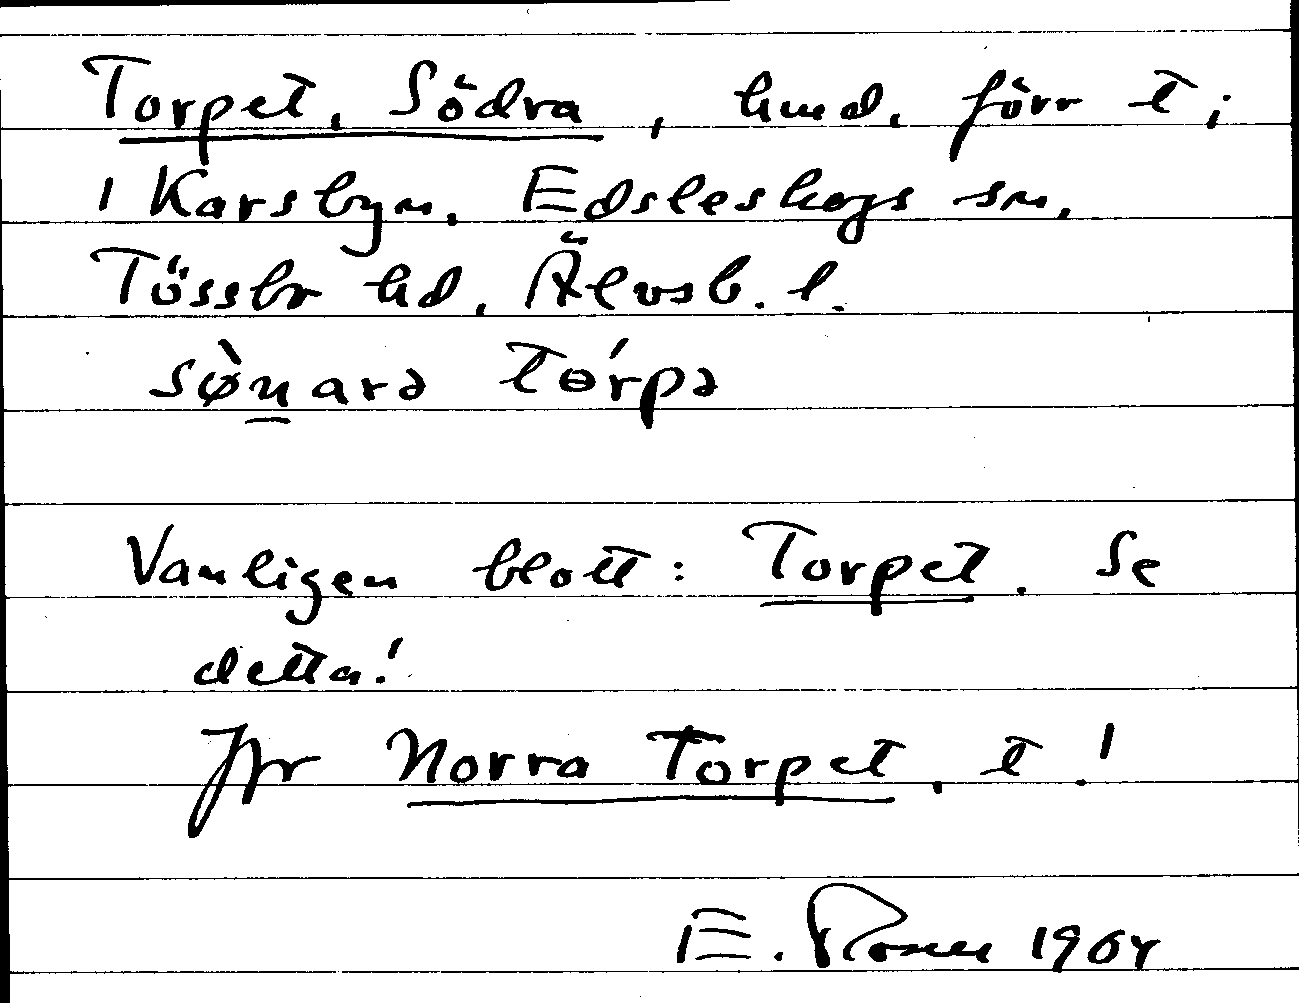 Torpet, Södra, hmd, förr t;
i Karsbyn, Edsleskogs sn,
Tössbo hd, Älvsb. l.
sø̀n̲arə tɵ́rpə
Vanligen blott: Torpet. Se
detta!
Jfr Norra Torpet, t!
E. Rosén 1964